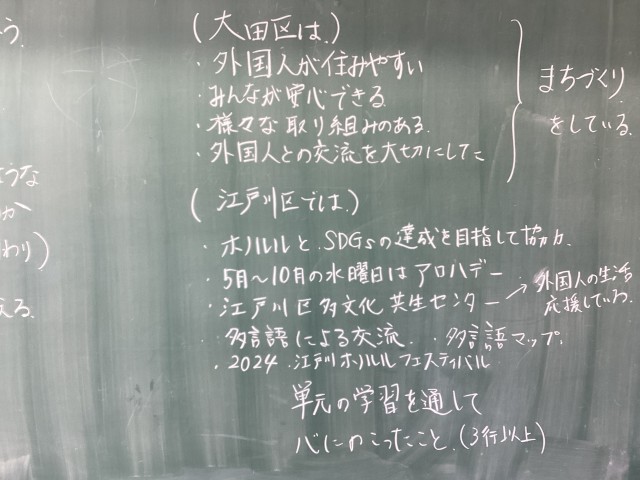 う。
(大田区は)
・外国人が住みやすい
・みんなが安心できる
・様々な取り組みのある
・外国人との交流を大切にした
まちづくり
をしている。
ような
わり)
える。
(江戸川区では)
・ホノルルと、SDGsの達成を目指して協力。
・5月〜10月の水曜日はアロハデー
・江戸川区多文化共生センター→外国人の生活
応援している。
・多言語による交流 ・多言語マップ。
・2024 江戸川ホノルルフェスティバル
単元の学習を通して
心にのこったこと。(3行以上)